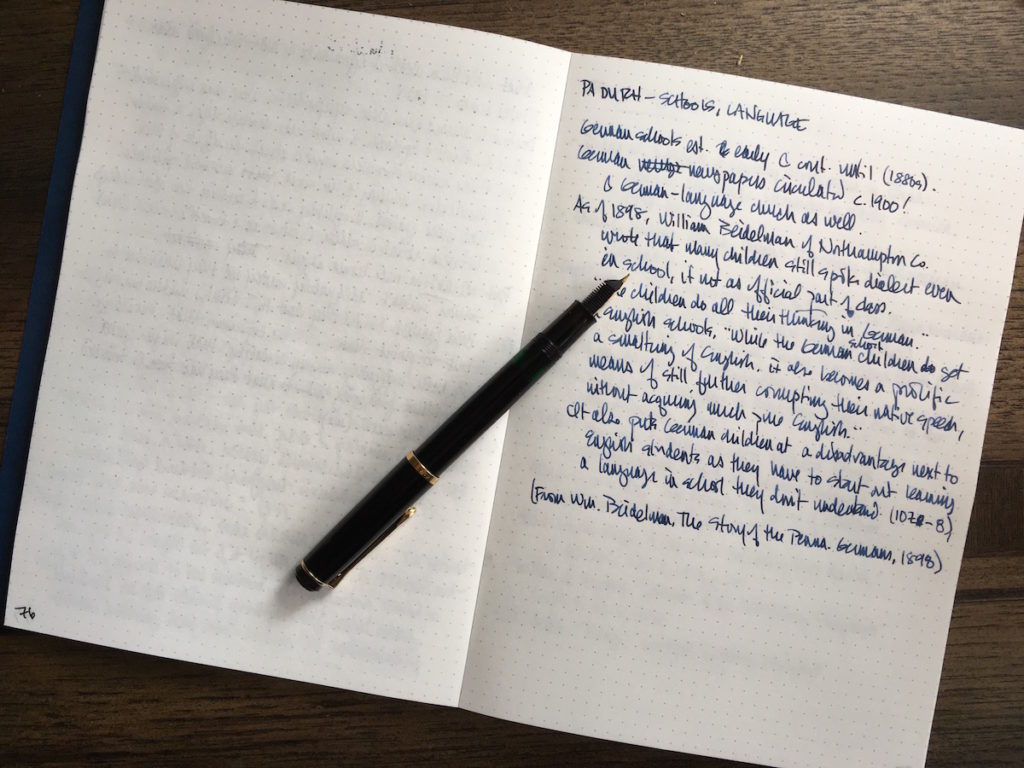 PA DUTCH – SCHOOLS, LANGUAGE
German schools est. early & cont. until (1880s).
German newspapers circulated c. 1900!
& German-language church as well.
As of 1898, William Beidelman of Northampton Co.
wrote that many children still spoke dialect even
in school, if not as official part of class.
children do all their thinking in German."
English schools, "While the German children do get
a smattering of English, it also becomes a prolific
means of still further corrupting their native speech,
without acquiring much pure English."
It also puts German children at a disadvantage next to
English students as they have to start out learning
a language in school they don't understand.
(From Wm. Beidelman, The Story of the Penna. Germans, 1898)
76